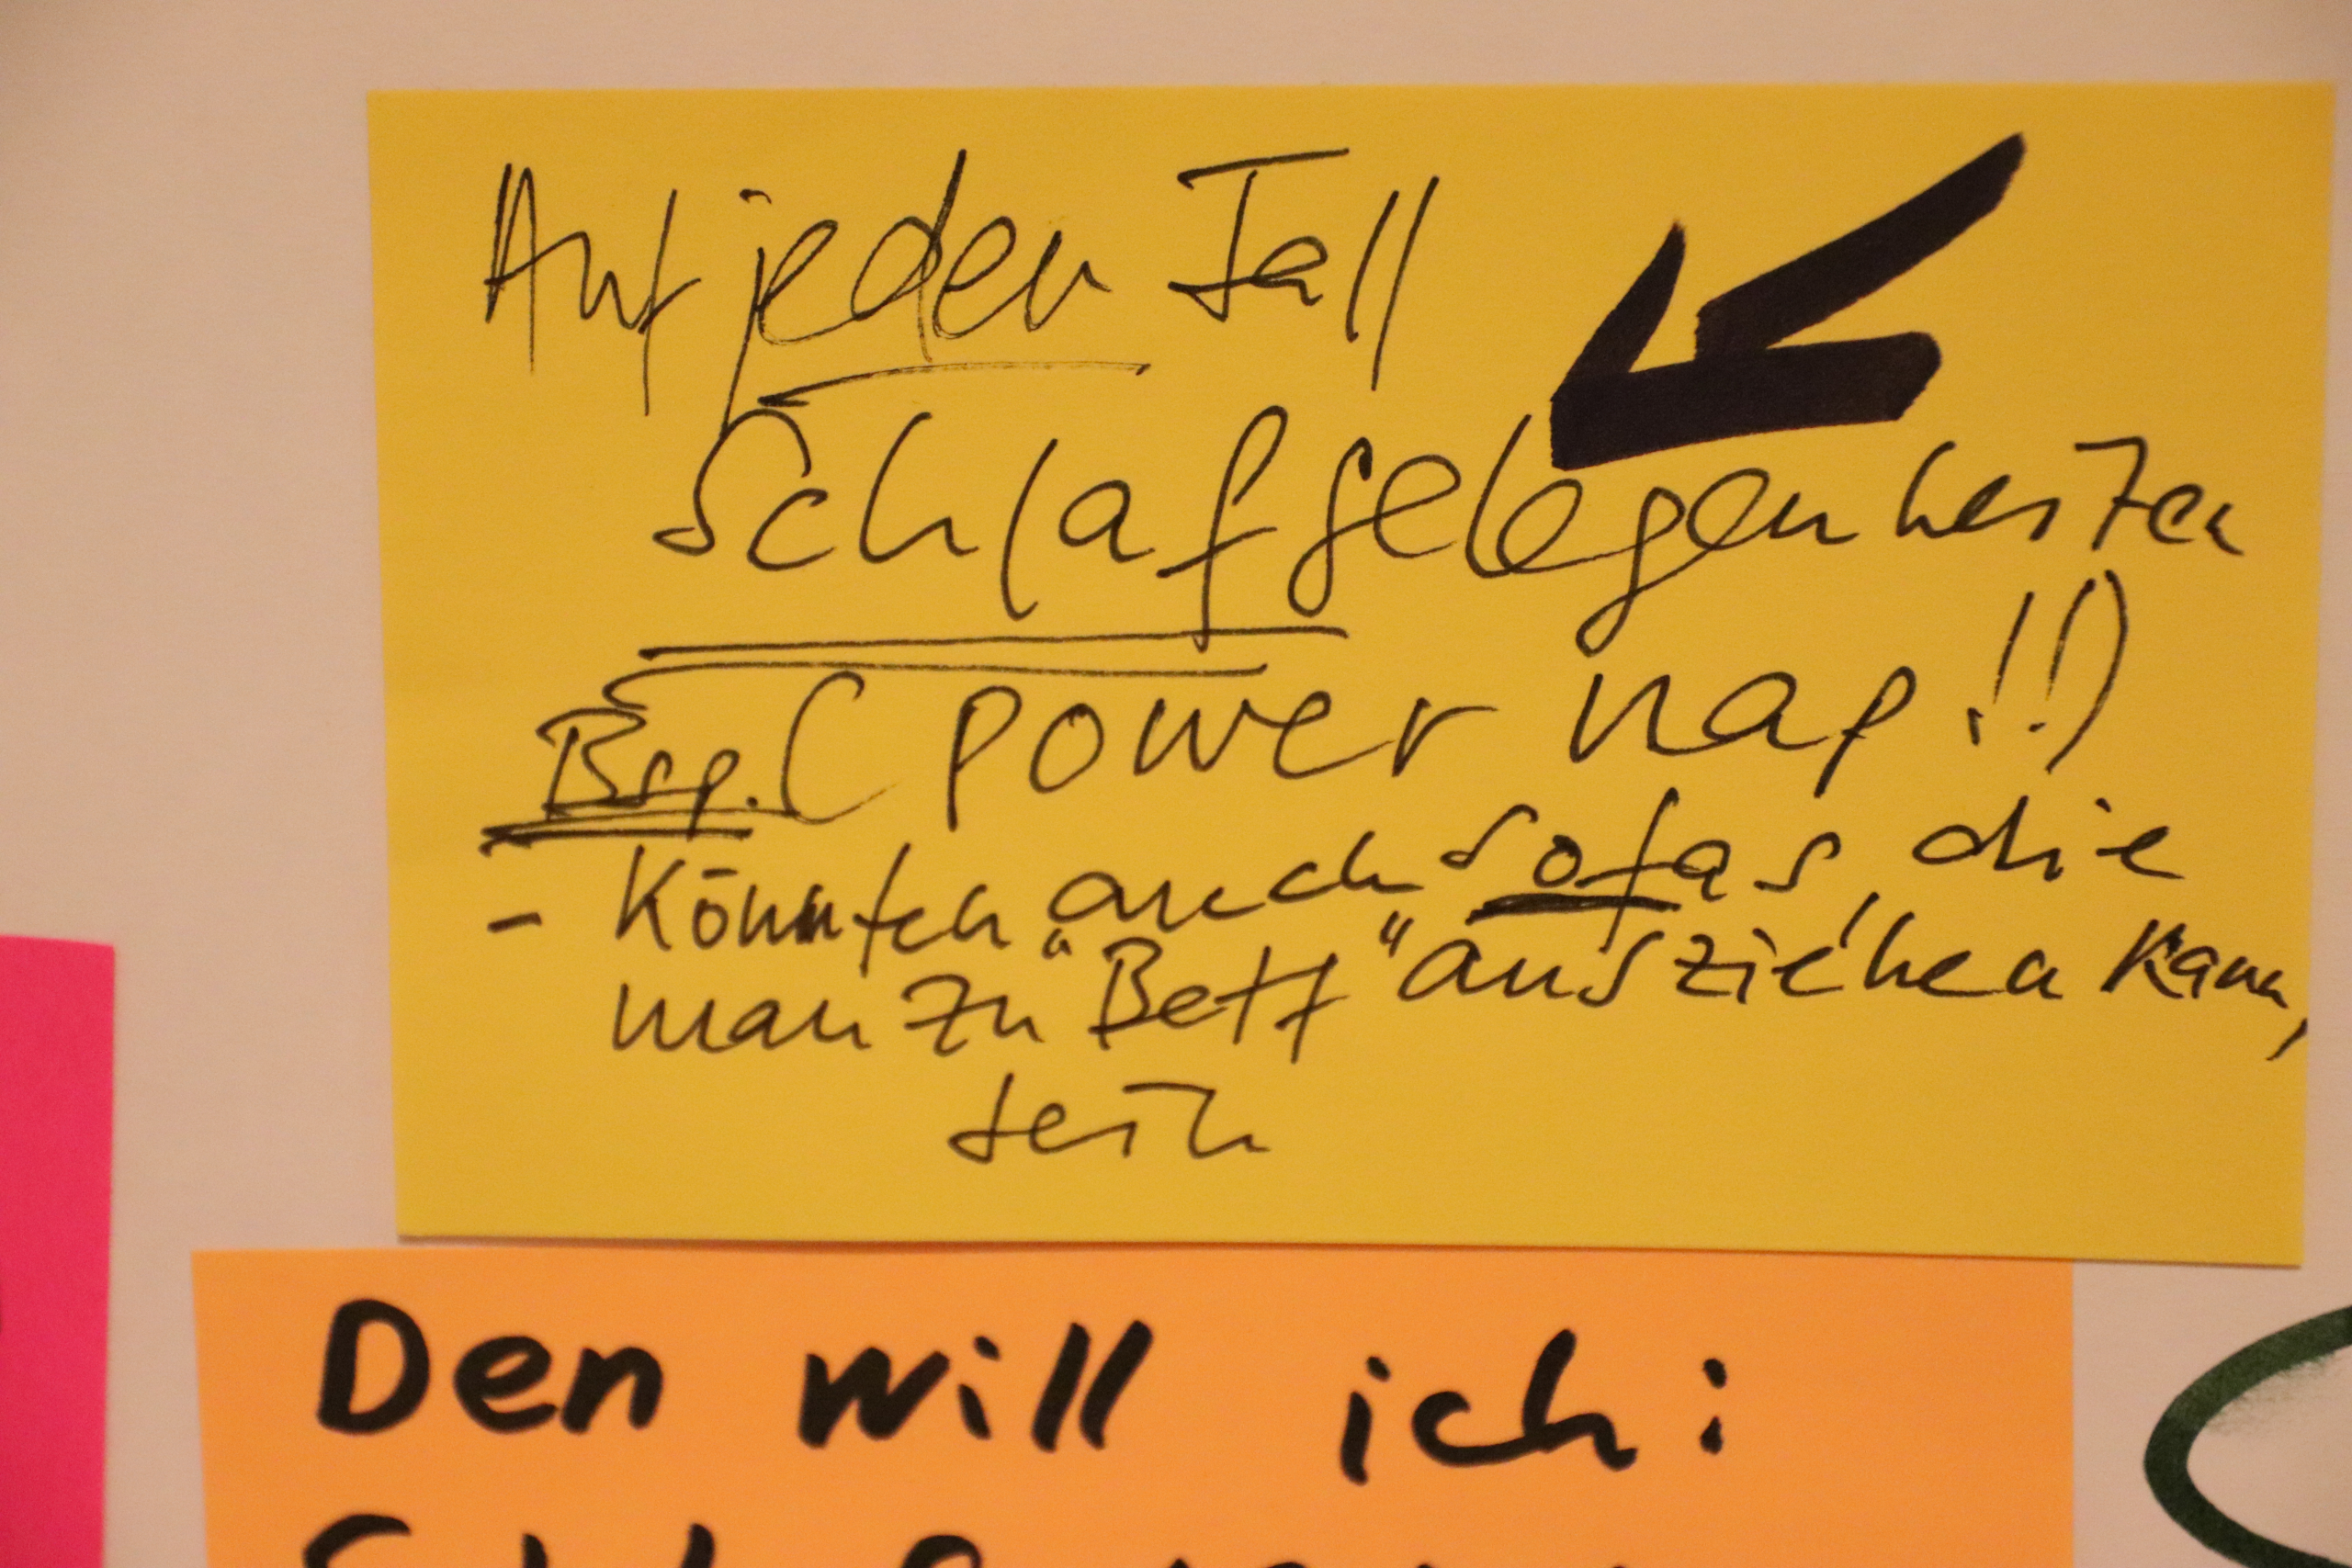 Auf jeden Fall
Schlafgelegenheiten
Bsp. (power nap!!)
- Könnten auch sofas, die
man zu "Bett" ausziehen kann,
sein
Den will ich: